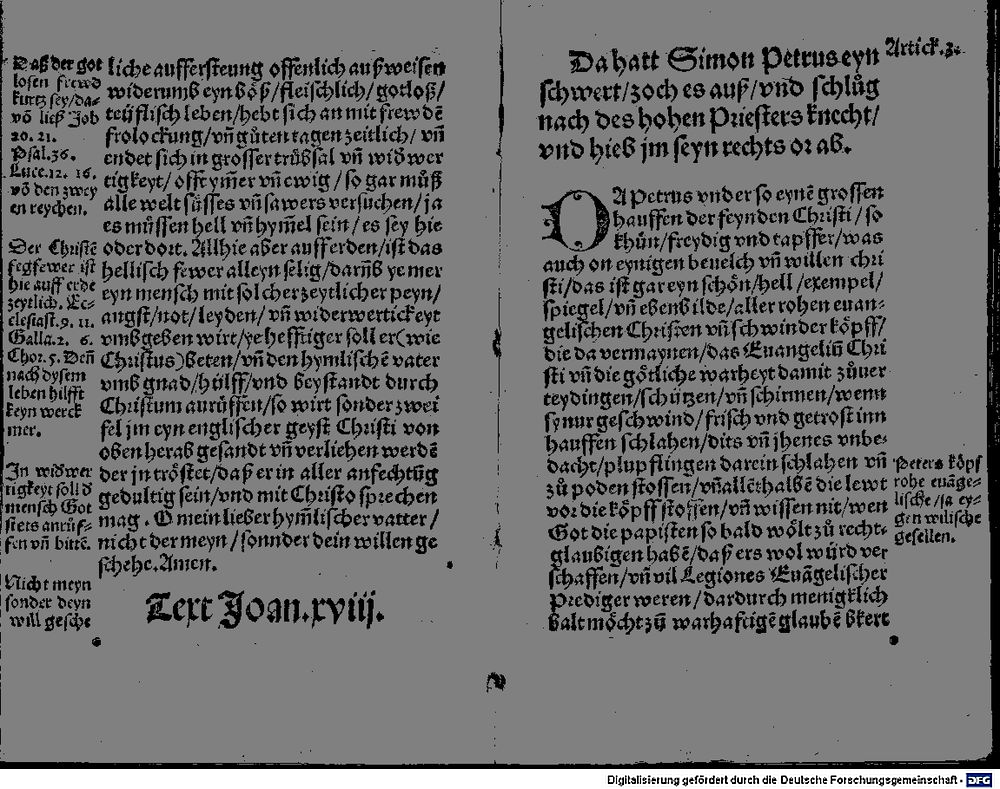 Daß der got
losen frewd
kurtz sey/da-
võ ließ Job
20. 21.
Psal.36.
Luce.12. 16.
võ den zwey
en reychen.
Der Christẽ
fegfewer ist
hie auff erde
zeytlich. Ec-
clesiast.9. 11.
Galla.2. 6.
Chor.5. Deñ
nach dysem
leben hilfft
keyn werck
mer.
In widwer
tigkeyt soll d
mensch Got
stets anrůf-
fen vñ bittẽ.
Nicht meyn
sonder deyn
will gesche
liche auffersteung offenlich außweisen
widerumb eyn bőß/fleischlich/gotloß/
teüflisch leben/hebt sich an mit frewdẽ
frolockung/vñ gůten tagen zeitlich/ vñ
endet sich in grosser trübsal vñ widwer
tigkeyt/ offt ym̃er vñ ewig /so gar můß
alle welt süsses vñ sawers versuchen/ja
es müssen hell vñ hym̃el sein/es sey hie
oder dort. Allhie aber auff erden/ist das
hellisch fewer alleyn selig/darũb ye mer
eyn mensch mit solcher zeytlicher peyn/
angst/not/leyden/ vñ widerwertickeyt
vmbgeben wirt/ye hefftiger soll er(wie
Christus)beten/vñ den hymlischẽ vater
vmb gnad/hülff/vnd beystandt durch
Christum anrůffen/so wirt sonder zwei
fel jm eyn englischer geyst Christi von
oben herab gesandt vñ verliehen werdẽ
der jn trőstet/daß er in aller anfechtũg
gedultig sein/vnd mit Christo sprechen
mag. O mein lieber hym̃lischer vatter/
nicht der meyn/sonnder dein willen ge
schehe. Amen.
Text Joan.xviij.
Artick.3.
Da hatt Simon Petrus eyn
schwert/zoch es auß/vnd schlůg
nach des hohen Priesters knecht/
vnd hieb jm seyn rechts or ab.
DA Petrus vnder so eynẽ grossen
hauffen der feynden Christi/so
khün/freydig vnd tapffer/was
auch on eynigen beuelch vñ willen chri
sti/das ist gar eyn schőn/hell/exempel/
spiegel/vñ ebenbilde/aller rohen euan-
gelischen Christen vñ schwinder kőpff/
die da vermaynen/das Euangeliũ Chri
sti vñ die gőtliche warheyt damit zůuer
teydingen/schützen/vñ schirmen/wenn
sy nur geschwind/frisch vnd getrost inn
hauffen schlahen/dits vñ jhenes vnbe-
dacht/plupflingen darein schlahen vñ
zů poden stossen/vñ allẽthalbẽ die lewt
vor die kőpff stossen/vñ wissen nit/wen
Got die papisten so bald wőlt zů recht-
glaubigen habẽ/daß ers wol würd ver
schaffen/vñ vil Legiones Euãgelischer
Prediger weren/dardurch menigklich
balt mőcht zů warhafftigẽ glaubẽ bkert
Peters kőpf
rohe euãge-
lische/ja ey-
gen wilische
gesellen.
Digitalisierung gefördert durch die Deutsche Forschungsgemeinschaft - DFG